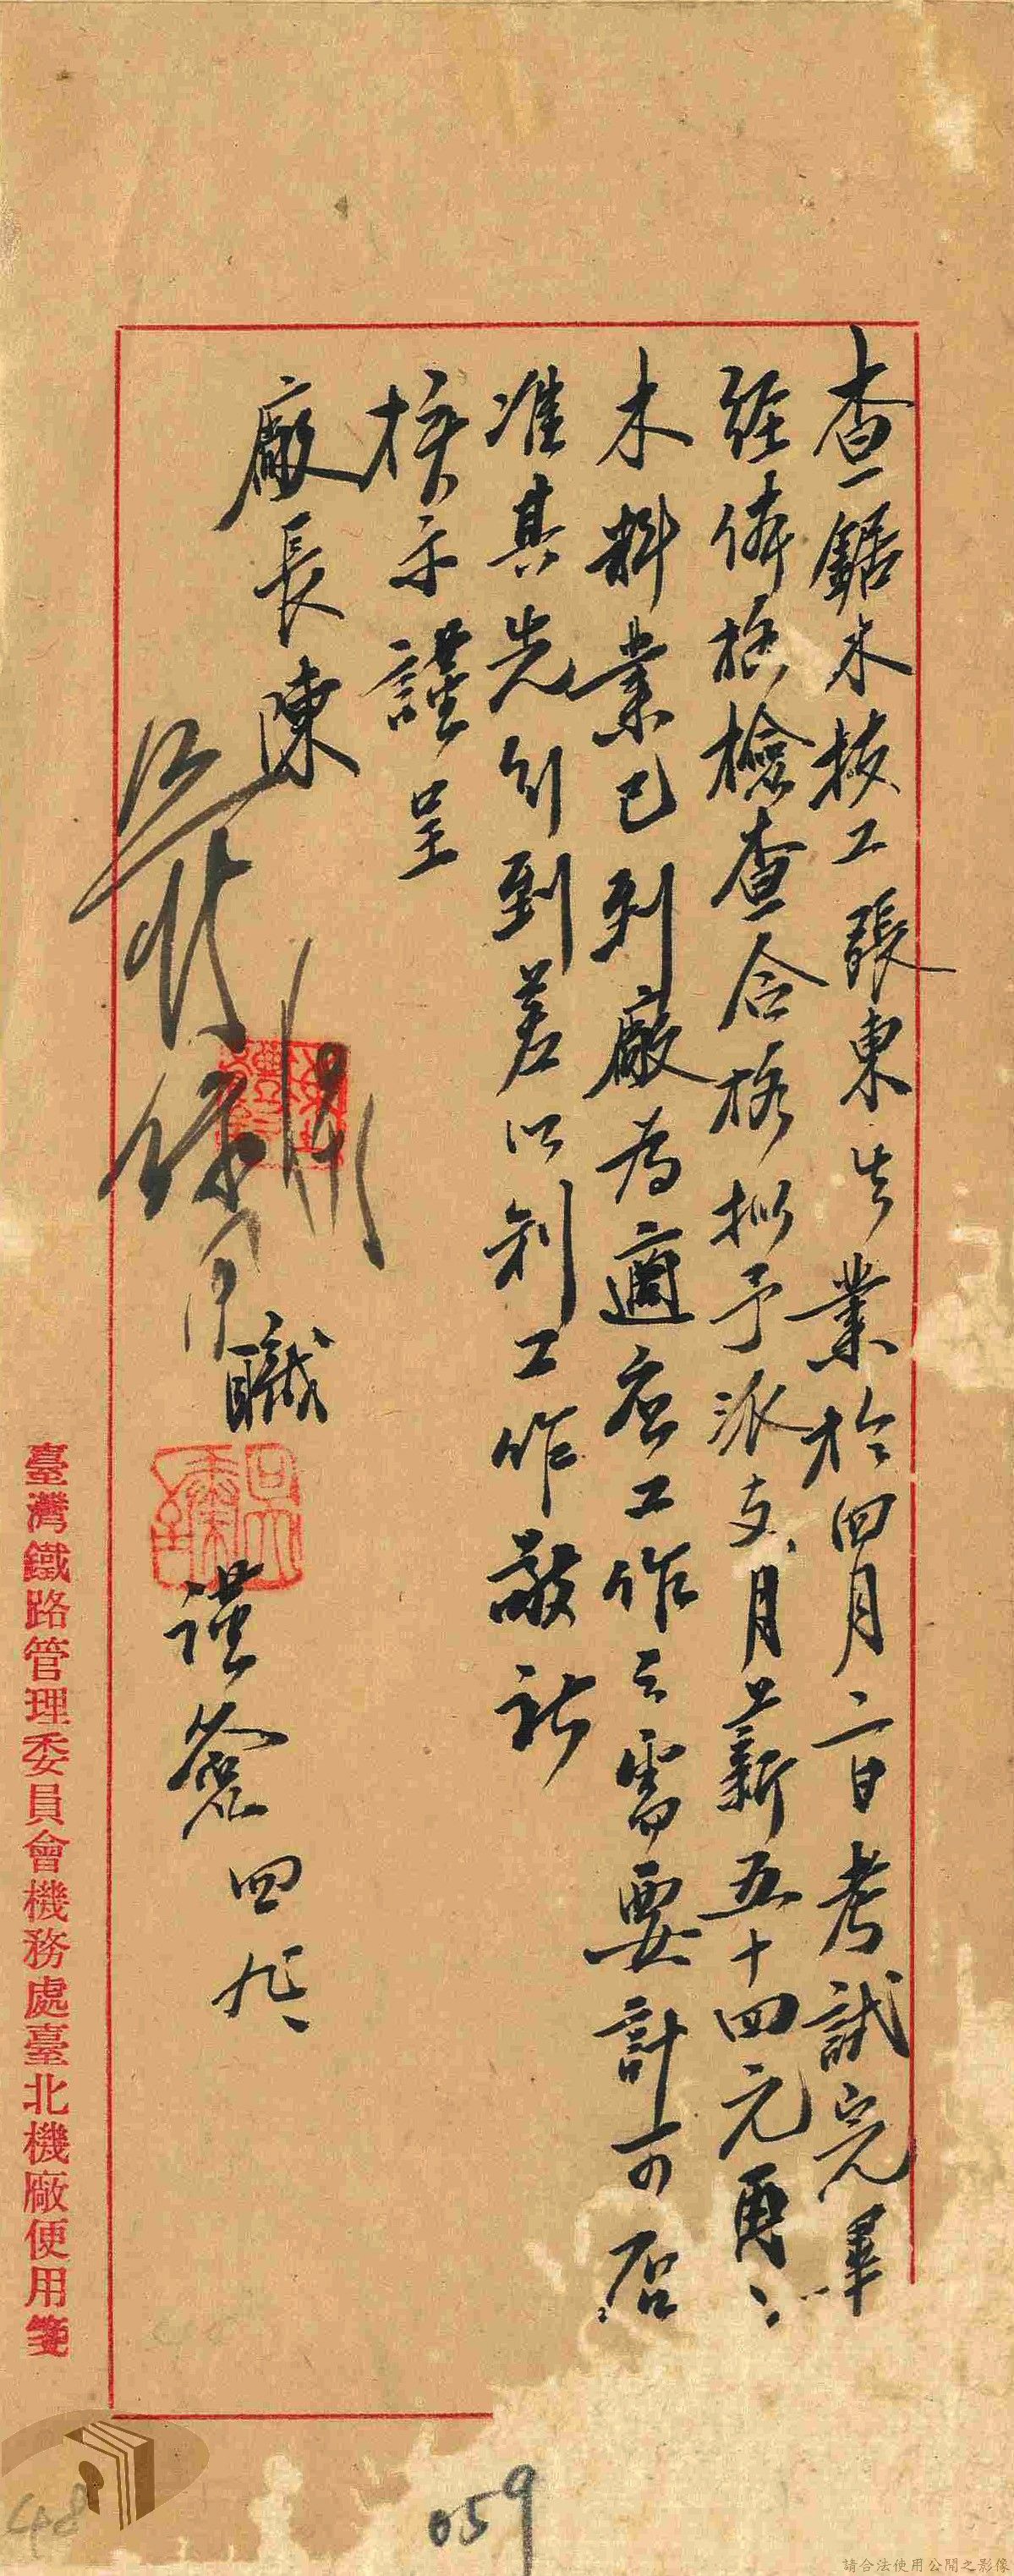 查鋸木技工張東生業於四月二日考試完畢
經併施檢查合格擬予派支月工薪五十四元再
木料業已到廠為適應工作之需要計可否
准其先行到差以利工作敬祈
核示謹呈
廠長陳
職
謹簽 四 九
臺灣鐵路管理委員會機務處臺北機廠便用箋
059
48
請合法使用公開之影像